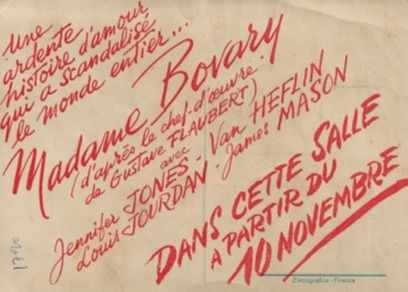 Une
ardente
histoire d'amour
qui a scandalisé
le monde entier...
Madame Bovary
(d'après le chef-d'œuvre
de Gustave FLAUBERT)
avec
Jennifer JONES - Van HEFLIN
Louis JOURDAN - James MASON
DANS CETTE SALLE
A PARTIR DU
10 NOVEMBRE
Zincografica - Firenze